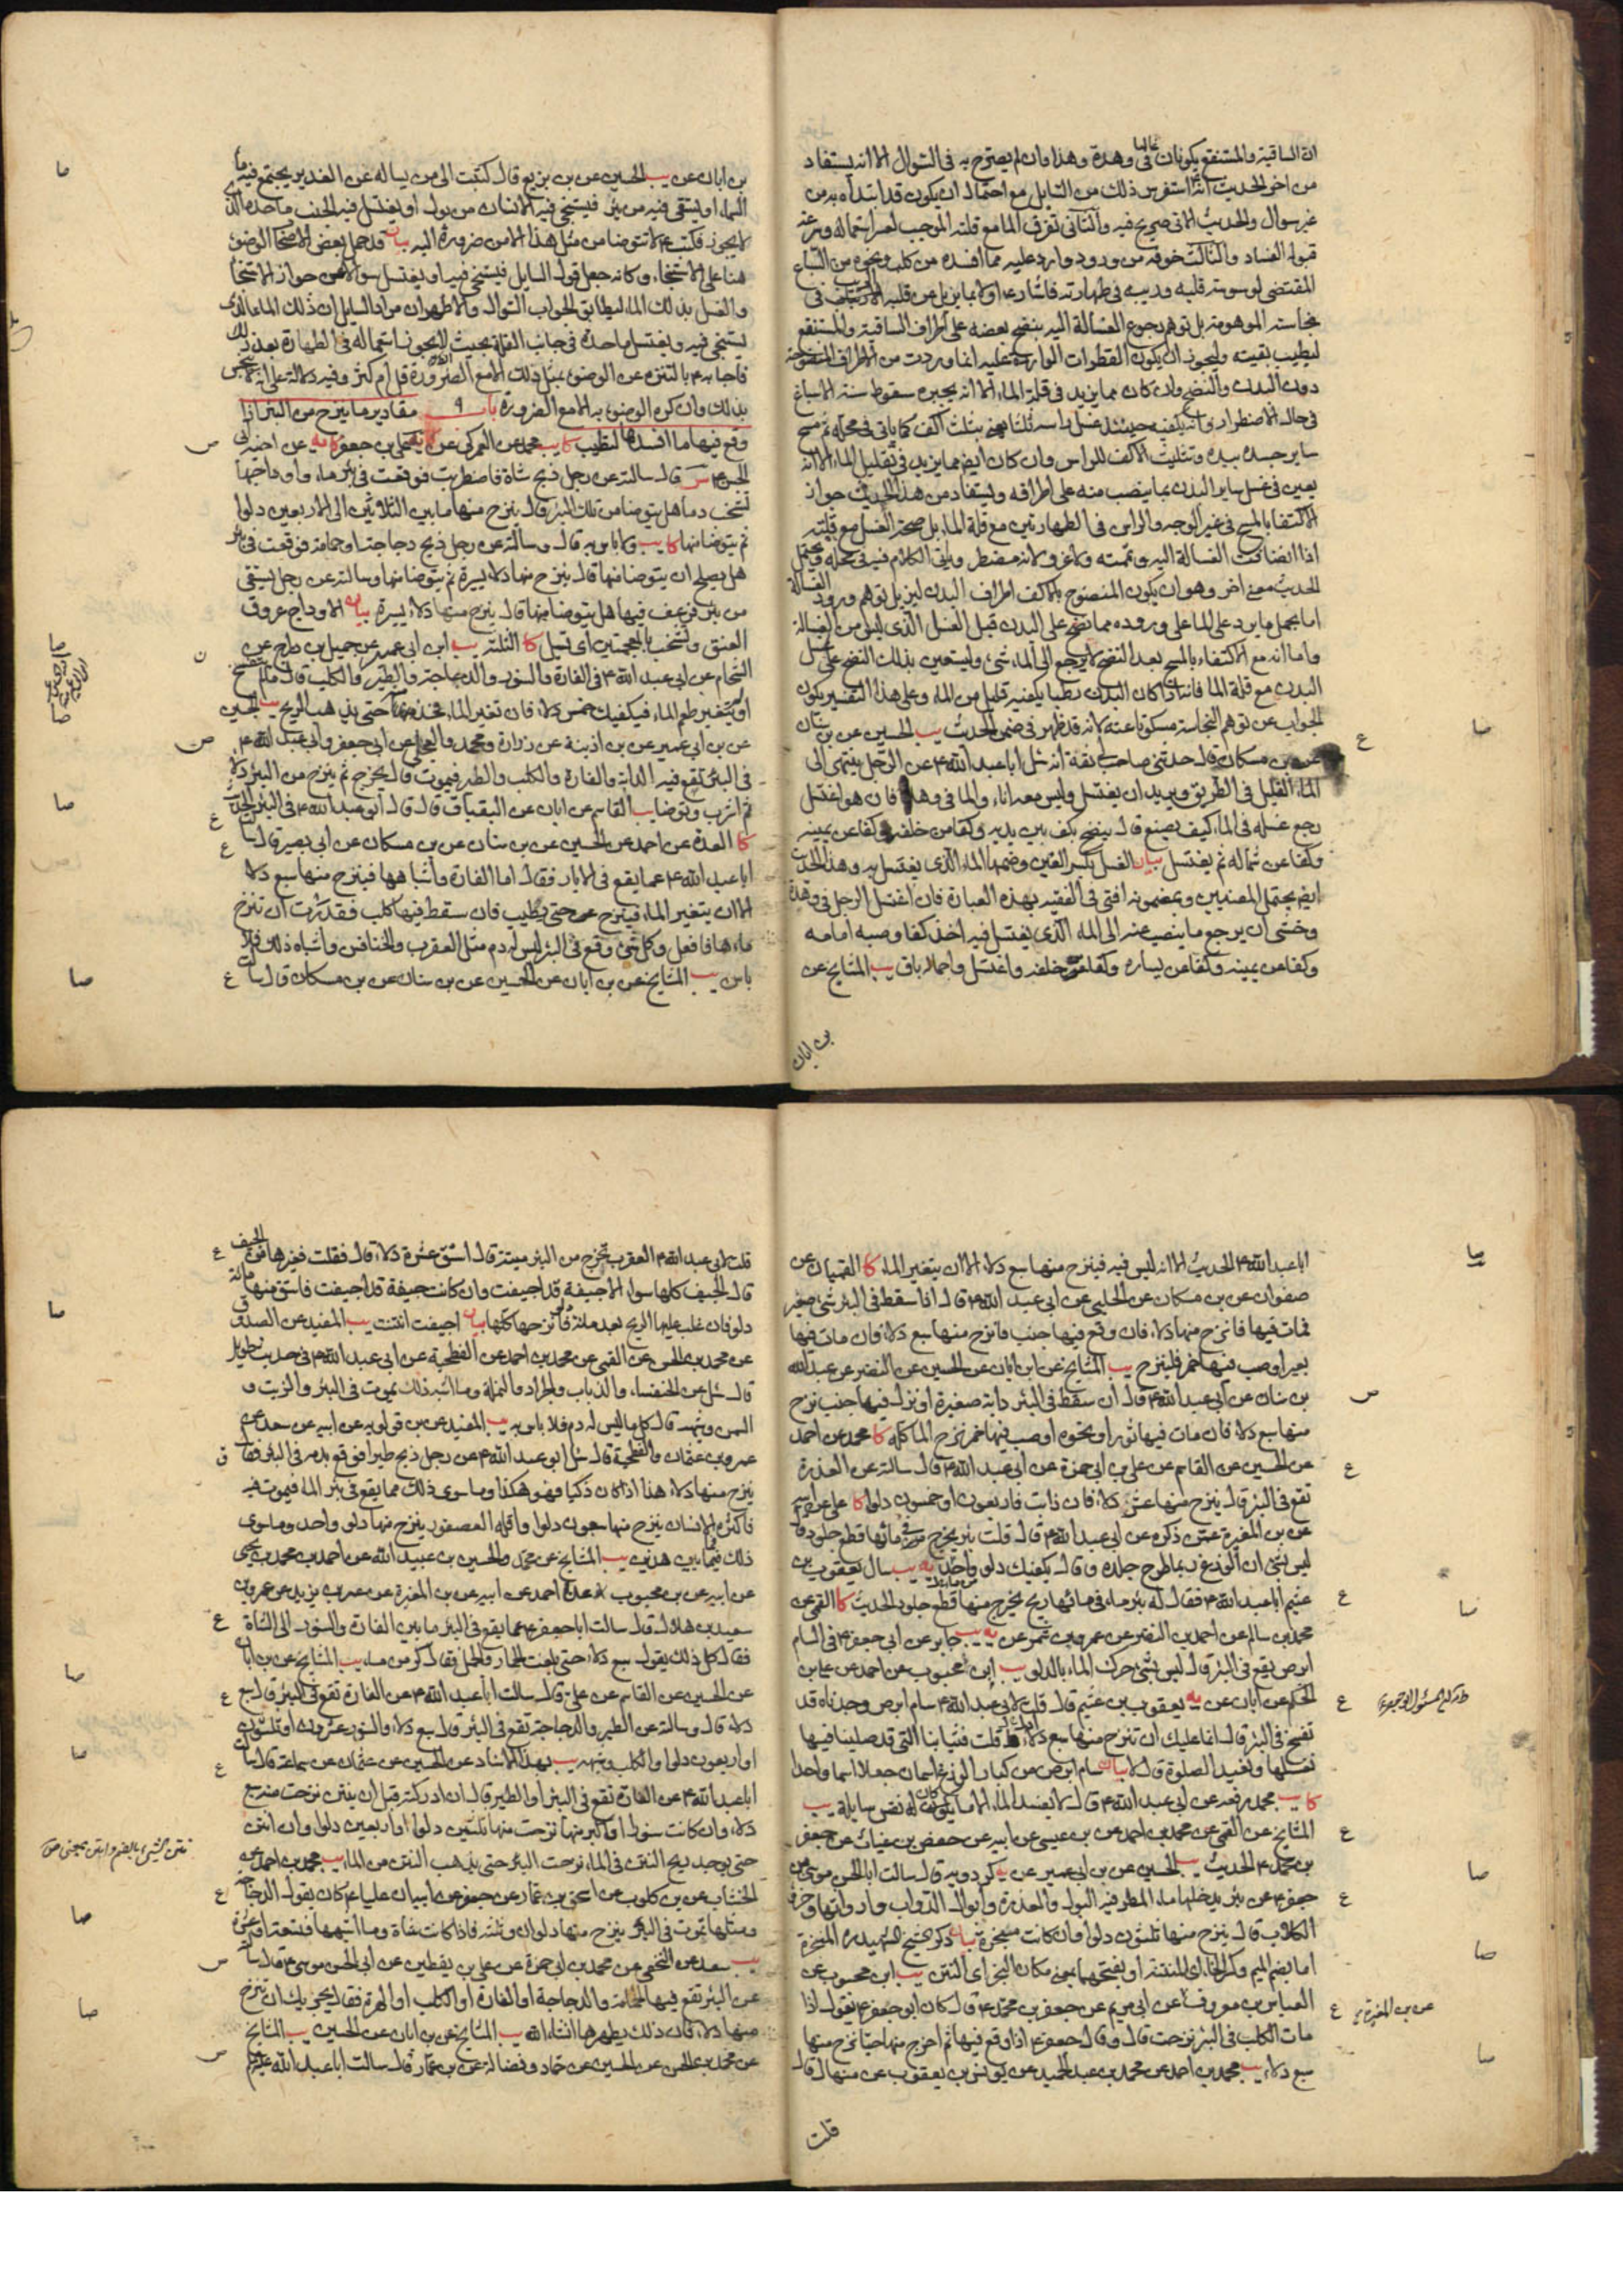 ان الساقية والمستنقع يكونان غالبا في وهدة وهذا وان لم يصرح به في السوال الا انه يستفاد
من اخر الحديث استفرس ذلك من السايل مع احتمال ان يكون قد ابتدأه به من
غير سوال والحديث الاتي صريح فيه والثاني تفرق الما مع قلته الموجب لعسر استعماله وسرعة
قبوله الفساد والثالث خوفه من ورود وارد عليه مما افسده من كلب ونحوه من السباع
المقتضي لوسوسة قلبه وريبه في طهارته فاشار ع اولا بما يزيل عن قلبه
نجاسته الموهومة بل توهم رجوع الغسالة اليه بنضح بعضه على اطراف الساقية والمستنقع
ليطيب بقيته ويجوز ان يكون القطرات الواردة عليه انما وردت من الاطراف المنضوحة
دون البدن والنضح وان كان مما يزيد في قلة الماء الا انه يجبره سقوط سنة الاسباغ
في حال الاضطرار وانه يكفيه حينئذ غسل راسه ثلثا بثلث اكف كما ياتي في محله ثم مسح
ساير جسده بيده وتثليث الاكف للراس وان كان ايضا مما يزيد في تقليل الماء الا انه
يعين في غسل ساير البدن بما ينصب منه على اطرافه ويستفاد من هذا الحديث جواز
الاكتفا بالمسح في غير الوجه والراس في الطهارتين مع قلة الما بل صحة الغسل مع قلته
اذا انضافت الغسالة اليه وتمته ولا غرو لانه مضطر وياتي الكلام فيه في محله ويحتمل
الحديث معنى اخر وهو ان يكون المنضوح بالاكف اطراف البدن ليزيل توهم ورود الغسالة
اما بحمل ما يرد على الما على وروده مما نضح على البدن قبل الغسل الذي ليس من الغسالة
واما انه مع الاكتفاء بالمسح بعد النضح لا يرجع الى الماء شيء وليستعين بذلك النضح على غسل
البدن مع قلة الما فانه اذا كان البدن رطبا يكفيه قليل من الماء وعلى هذا التفسير يكون
الجواب عن توهم النجاسة مسكوتا عنه لانه قد ظهر في ضمن الحديث يب الحسين عن بن سنان
عن بن مسكان قال حدثني صاحب لي ثقة انه سئل ابا عبد الله ع عن الرجل ينتهي الى
الماء القليل في الطريق ويريد ان يغتسل وليس معه اناء والما في وهدة فان هو اغتسل
رجع غسله في الماء كيف يصنع قال ينضح بكف بين يديه وكفا من خلفه وكفا عن يمينه
وكفا عن شماله ثم يغتسل بيان الغسل بكسر الغين وضمها الماء الذي يغتسل به وهذا الحديث
ايضا يحتمل المعنيين وبمضمونه افتى في الفقيه بهذه العبارة فان اغتسل الرجل في وهدة
وخشي ان يرجع ما ينصب عنه الى الماء الذي يغتسل فيه اخذ كفا وصبه امامه
وكفا عن يمينه وكفا عن يساره وكفا من خلفه واغتسل واجمالا باق يب المشايخ عن
بن ابان
بن ابان عن يب الحسين عن بن بزيع قال كتبت الى من يساله عن الغدير يجتمع فيه ماء
السماء او يستقى فيه من بئر فيستنجي فيه الانسان من بول او يغتسل فيه الجنب ما حده الذي
لا يجوز فكتب ع لا تتوضا من مثل هذا الا من ضرورة اليه بيان قد حمل بعض الاصحاب الوضوء
هنا على الاستنجاء وكانه جعل قول السايل فيستنجي فيه او يغتسل سوالا عن جواز الاستنجا
والغسل بذلك الماء ليطابق الجواب السوال والاظهر ان مراد السايل ان ذلك الماء الذي
يستنجي فيه ويغتسل ما حده في جانب القلة بحيث لا يجوز استعماله في الطهارة بعد ذلك
فاجابه ع بالتنزه عن الوضوء بمثل ذلك الا مع الضرورة قل ام كثر وفيه دلالة على انه لا ينجس
بذلك وان كره الوضوء به الا مع الضرورة باب ٩ مقادير ما ينزح من البئر اذا
وقع فيها ما افسدها لتطيب كا يب محمد عن العمركي عن علي بن جعفر عن اخيه ابي
الحسن ع قال سالته عن رجل ذبح شاة فاضطربت فوقعت في بئر ماء واوداجها
تشخب دما هل يتوضا من تلك البئر قال ينزح منها ما بين الثلاثين الى الاربعين دلوا
ثم يتوضا منها كا يب ولا باس به قال وسالته عن رجل ذبح دجاجة او حمامة فوقعت في بئر
هل يصلح ان يتوضا منها قال ينزح منها دلاء يسيرة ثم يتوضا منها وسالته عن رجل يستقي
من بئر فرعف فيها هل يتوضا منها قال ينزح منها دلاء يسيرة بيان الاوداج عروق
العنق وتشخب بالمعجمتين اي تسيل كا الثلثة يب ابن ابي عمير عن جميل بن دراج عن
الشحام عن ابي عبد الله ع في الفارة والسنور والدجاجة والطير والكلب قال ما لم يتفسخ
او يتغير طعم الماء فيكفيك خمس دلاء فان تغير الماء فخذ منه حتى يذهب الريح يب الحسين
عن بن ابي عمير عن بن اذينة عن زرارة ومحمد والعجلي عن ابي جعفر وابي عبد الله ع
في البئر تقع فيه الدابة والفارة والكلب والطير فيموت قال يخرج ثم ينزح من البئر دلاء
ثم اشرب وتوضا يب القاسم عن ابان عن البقباق قال قال ابو عبد الله ع في البئر الحديث
كا العدة عن احمد عن الحسين عن بن سنان عن بن مسكان عن ابي بصير قال سالت
ابا عبد الله ع عما يقع في الابار فقال اما الفارة واشباهها فينزح منها سبع دلاء
الا ان يتغير الماء فينزح حتى يطيب فان سقط فيها كلب فقدرت ان تنزح
ماءها فافعل وكل شيء وقع في البئر ليس له دم مثل العقرب والخنافس واشباه ذلك فلا
باس يب المشايخ عن بن ابان عن الحسين عن بن سنان عن بن مسكان قال سالت
ابا عبد الله ع الحديث الا انه ليس فيه فينزح منها سبع دلاء الا ان يتغير الماء كا القميان عن
صفوان عن بن مسكان عن الحلبي عن ابي عبد الله ع قال اذا سقط في البئر شيء صغير
فمات فيها فانزح منها دلاء فان وقع فيها جنب فانزح منها سبع دلاء فان مات فيها
بعير او صب فيها خمر فلينزح يب المشايخ عن ابن ابان عن الحسين عن النضر عن عبد الله
بن سنان عن ابي عبد الله ع قال ان سقط في البئر دابة صغيرة او نزل فيها جنب نزح
منها سبع دلاء فان مات فيها ثور او نحوه او صب فيها خمر نزح الما كله كا محمد عن احمد
عن الحسين عن القاسم عن علي بن ابي حمزة عن ابي عبد الله ع قال سالته عن العذرة
تقع في البئر قال ينزح منها عشر دلاء فان ذابت فاربعون او خمسون دلوا كا علي عن ابيه
عن بن المغيرة عمن ذكره عن ابي عبد الله ع قال قلت بئر يخرج في مائها قطع جلود قال
ليس بشئ ان الوزغ ربما طرح جلده وقال يكفيك دلو واحد يه يب سال يعقوب بن
عثيم ابا عبد الله ع فقال له بئر ماء في مائها ريح يخرج منها قطع جلود الحديث كا القمي عن
محمد بن سالم عن احمد بن النضر عن عمرو بن شمر عن يه يب جابر عن ابي جعفر ع في السام
ابرص يقع في البئر قال ليس بشئ حرك الماء بالدلو يب ابن محبوب عن احمد عن علي بن
الحكم عن ابان عن يه يعقوب بن عثيم قال قلت لابي عبد الله ع سام ابرص وجدناه قد
تفسخ في البئر قال انما عليك ان تنزح منها سبع دلاء قلت فثيابنا التي قد صلينا فيها
نغسلها ونعيد الصلوة قال لا بيان سام ابرص من كبار الوزغ اسمان جعلا اسما واحدا
كا يب محمد رفعه عن ابي عبد الله ع قال لا يفسد الماء الا ما كان له نفس سايلة يب
المشايخ عن القمي عن محمد بن احمد عن بن عيسى عن ابيه عن حفص بن غياث عن جعفر
بن محمد ع الحديث يب الحسين عن بن ابي عمير عن يه كردويه قال سالت ابا الحسن موسى بن
جعفر ع عن بئر يدخلها ماء المطر فيه البول والعذرة وابوال الدواب وارواثها وخرؤ
الكلاب قال ينزح منها ثلثون دلوا وان كانت مبخرة بيان ذكر الشيخ الشهيد ره المبخرة
اما بضم الميم وكسر الخاء اي المنتنة او بفتحهما بمعنى مكان البخر اي النتن يب ابن محبوب عن
العباس بن معروف عن ابي مريم عن جعفر بن محمد ع قال كان ابو جعفر ع يقول اذا
مات الكلب في البئر نزحت قال وقال جعفر ع اذا وقع فيها ثم اخرج منها حيا نزح منها
سبع دلاء يب محمد بن احمد عن محمد بن عبد الحميد عن يونس بن يعقوب عن منهال قال
عن بن المغيرة
قلت
قلت لابي عبد الله ع العقرب تخرج من البئر ميتة قال استق عشرة دلاء قال فقلت فغيرها من الجيف
قال الجيف كلها سواء الا جيفة قد اجيفت وان كانت جيفة قد اجيفت فاستق منها مائة
دلو فان غلب عليها الريح بعد مائة دلو فانزحها كلها بيان اجيفت انتنت يب المفيد عن الصدوق
عن محمد بن الحسن عن القمي عن محمد بن احمد عن الفطحية عن ابي عبد الله ع في حديث طويل
قال سئل عن الخنفساء والذباب والجراد والنملة وما اشبه ذلك يموت في البئر والزيت و
السمن وشبهه قال كل ما ليس له دم فلا باس به يب المفيد عن بن قولويه عن ابيه عن سعد عن
عمرو بن عثمان والفطحية قال سئل ابو عبد الله ع عن رجل ذبح طيرا فوقع بدمه في البئر فقال
ينزح منها دلاء هذا اذا كان ذكيا فهو هكذا وما سوى ذلك مما يقع في بئر الماء فيموت فيه
فاكثره الانسان ينزح منها سبعون دلوا واقله العصفور ينزح منها دلو واحد وما سوى
ذلك فيما بين هذين يب المشايخ عن محمد والحسين بن عبيد الله عن احمد بن محمد بن يحيى
عن ابيه عن بن محبوب عن احمد عن ابيه عن بن المغيرة عن عمر بن يزيد عن عمرو بن
سعيد بن هلال قال سالت ابا جعفر ع عما يقع في البئر ما بين الفارة والسنور الى الشاة
فقال كل ذلك يقول سبع دلاء حتى بلغت الحمار والجمل فقال كر من ماء يب المشايخ عن بن ابان
عن الحسين عن القاسم عن علي قال سالت ابا عبد الله ع عن الفارة تقع في البئر قال سبع
دلاء قال وسالته عن الطير والدجاجة تقع في البئر قال سبع دلاء والسنور عشرون او ثلثون
او اربعون دلوا والكلب وشبهه يب بهذا الاسناد عن الحسين عن عثمان عن سماعة قال سالت
ابا عبد الله ع عن الفارة تقع في البئر او الطير قال ان ادركته قبل ان ينتن نزحت منه سبع
دلاء وان كانت سنورا او اكبر منها نزحت منها ثلثين دلوا او اربعين دلوا وان انتن
حتى يوجد ريح النتن في الماء نزحت البئر حتى يذهب النتن من الماء يب محمد بن احمد عن
الخشاب عن بن كلوب عن اسحق بن عمار عن جعفر عن ابيه ان عليا ع كان يقول الدجاجة
ومثلها تموت في البئر ينزح منها دلوان وثلثة فاذا كانت شاة وما اشبهها فتسعة او عشرة
يب سعد عن النخعي عن محمد بن ابي حمزة عن علي بن يقطين عن ابي الحسن موسى ع قال سالته
عن البئر تقع فيها الحمامة والدجاجة او الفارة او الكلب او الهرة فقال يجزيك ان تنزح
منها دلاء فان ذلك يطهرها انشاء الله يب المشايخ عن بن ابان عن الحسين يب المشايخ
عن محمد بن الحسن عن الحسين عن حماد وفضالة عن بن عمار قال سالت ابا عبد الله ع